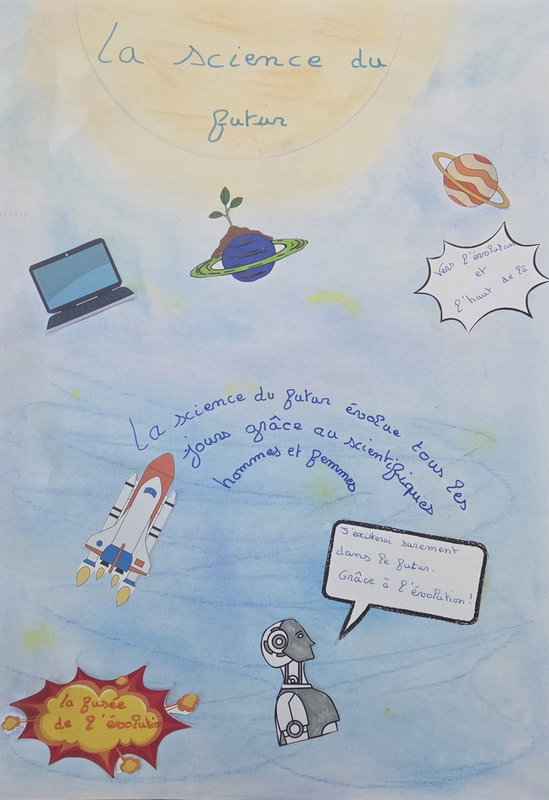 La science du
futur
Vers l'évolution
et
l'haut de là
La science du futur évolue tous les
jours grâce au scientifiques
hommes et femmes
J'existerai surement
dans le futur.
Grâce à l'évolution!
la fusée
de l'évolution